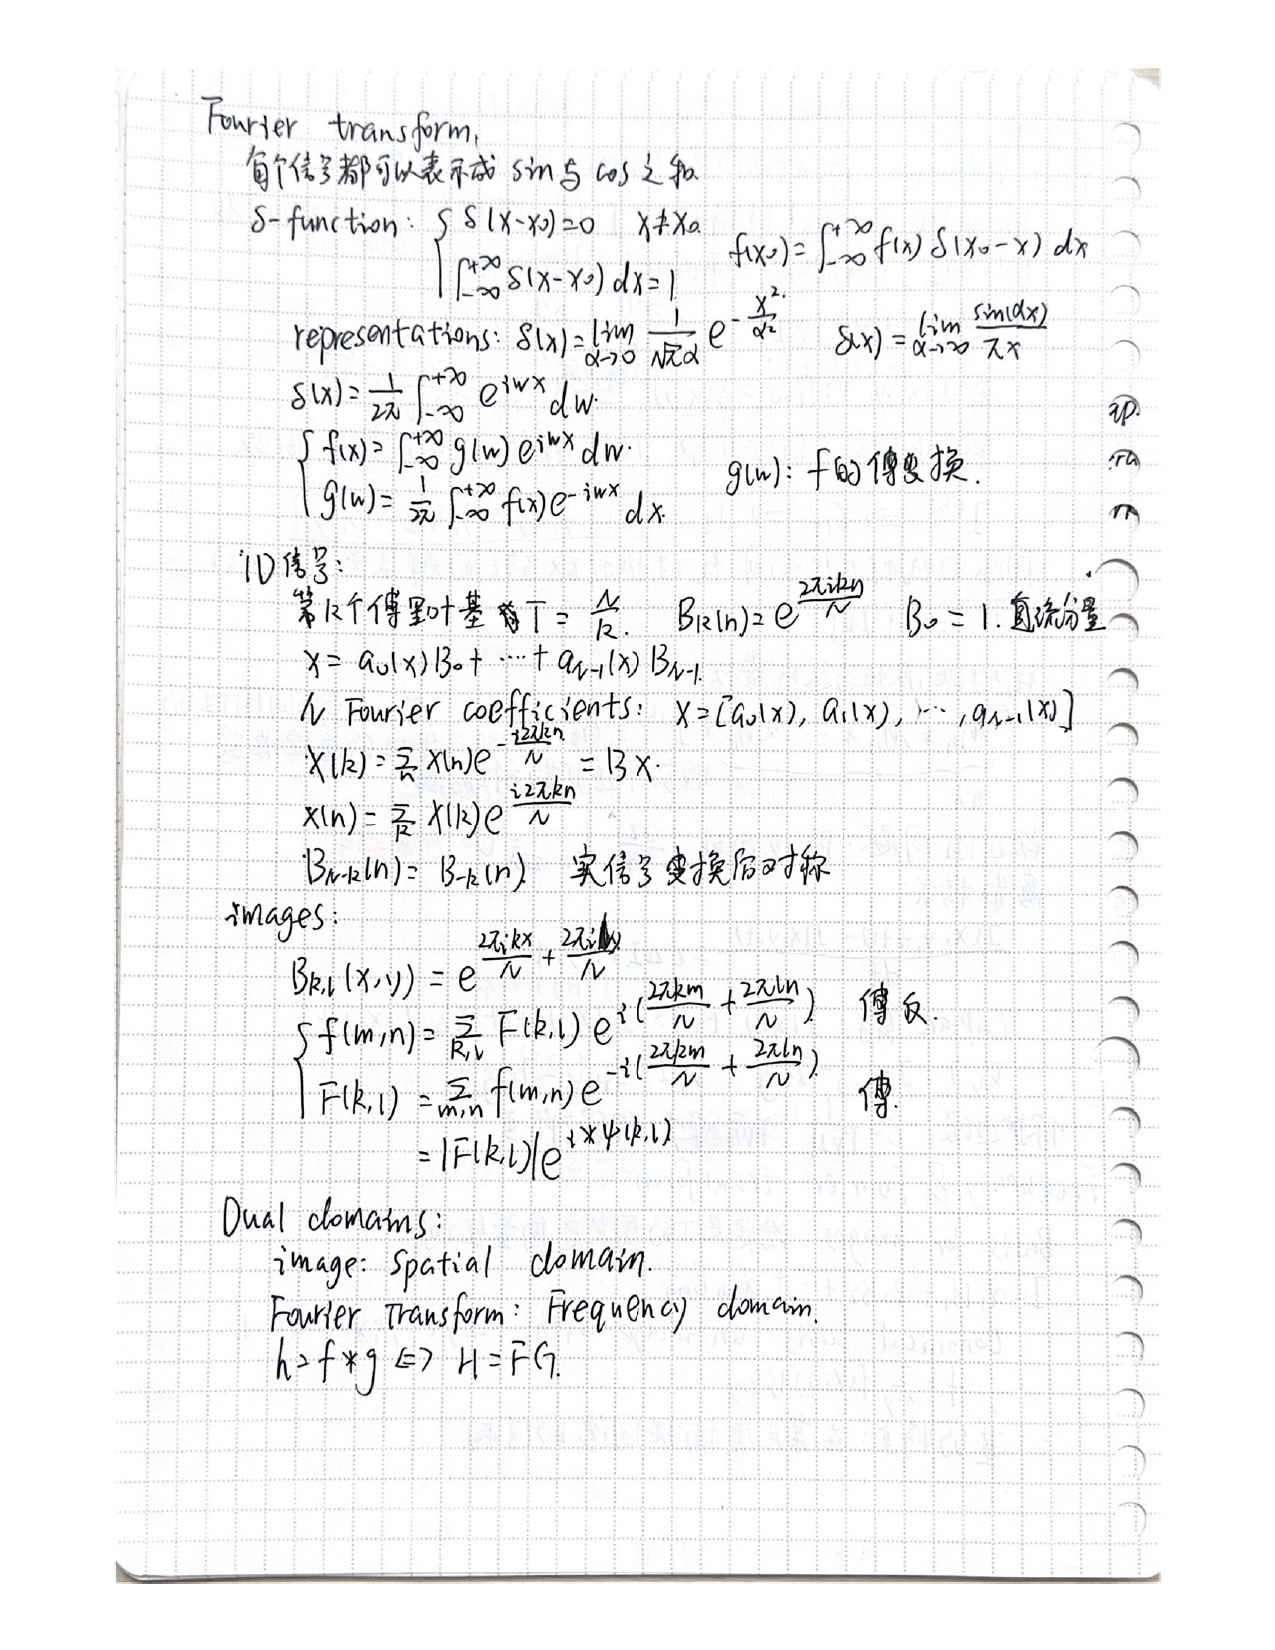 Fourier transform,
每个信号都可以表示成 sin 与 cos 之和
δ-function: { δ(x-x₀)=0 x≠x₀
∫_{-∞}^{+∞} δ(x-x₀) dx=1 f(x₀)=∫_{-∞}^{+∞} f(x) δ(x₀-x) dx
representations: δ(x)=lim_{α→0} 1/(√π α) e^{-x²/α²} δ(x)=lim_{α→∞} sin(αx)/(πx)
δ(x)=1/2π ∫_{-∞}^{+∞} e^{iwx} dw.
{ f(x)=∫_{-∞}^{+∞} g(w) e^{iwx} dw.
g(w)=1/2π ∫_{-∞}^{+∞} f(x) e^{-iwx} dx. g(w): f的傅变换.
1D信号:
第k个傅里叶基 有 T=N/k. B_k(n)=e^{2πikn/N} B₀=1.直流分量
x=a₀(x)B₀+…+a_{N-1}(x)B_{N-1}.
N Fourier coefficients: X=[a₀(x), a₁(x), …, a_{N-1}(x)]
X(k)=Σ_n x(n)e^{-i2πkn/N} = Bx.
x(n)=Σ_k X(k)e^{i2πkn/N}
B_{N-k}(n)=B_{-k}(n). 实信号变换后对称
images:
B_{k,l}(x,y)=e^{2πikx/N+2πily/N}
{ f(m,n)=Σ_{k,l} F(k,l) e^{i(2πkm/N+2πln/N)} 傅反.
F(k,l)=Σ_{m,n} f(m,n)e^{-i(2πkm/N+2πln/N)} 傅.
=|F(k,l)|e^{i*ψ(k,l)}
Dual domains:
image: spatial domain.
Fourier Transform: Frequency domain.
h=f*g ⇔ H=FG.